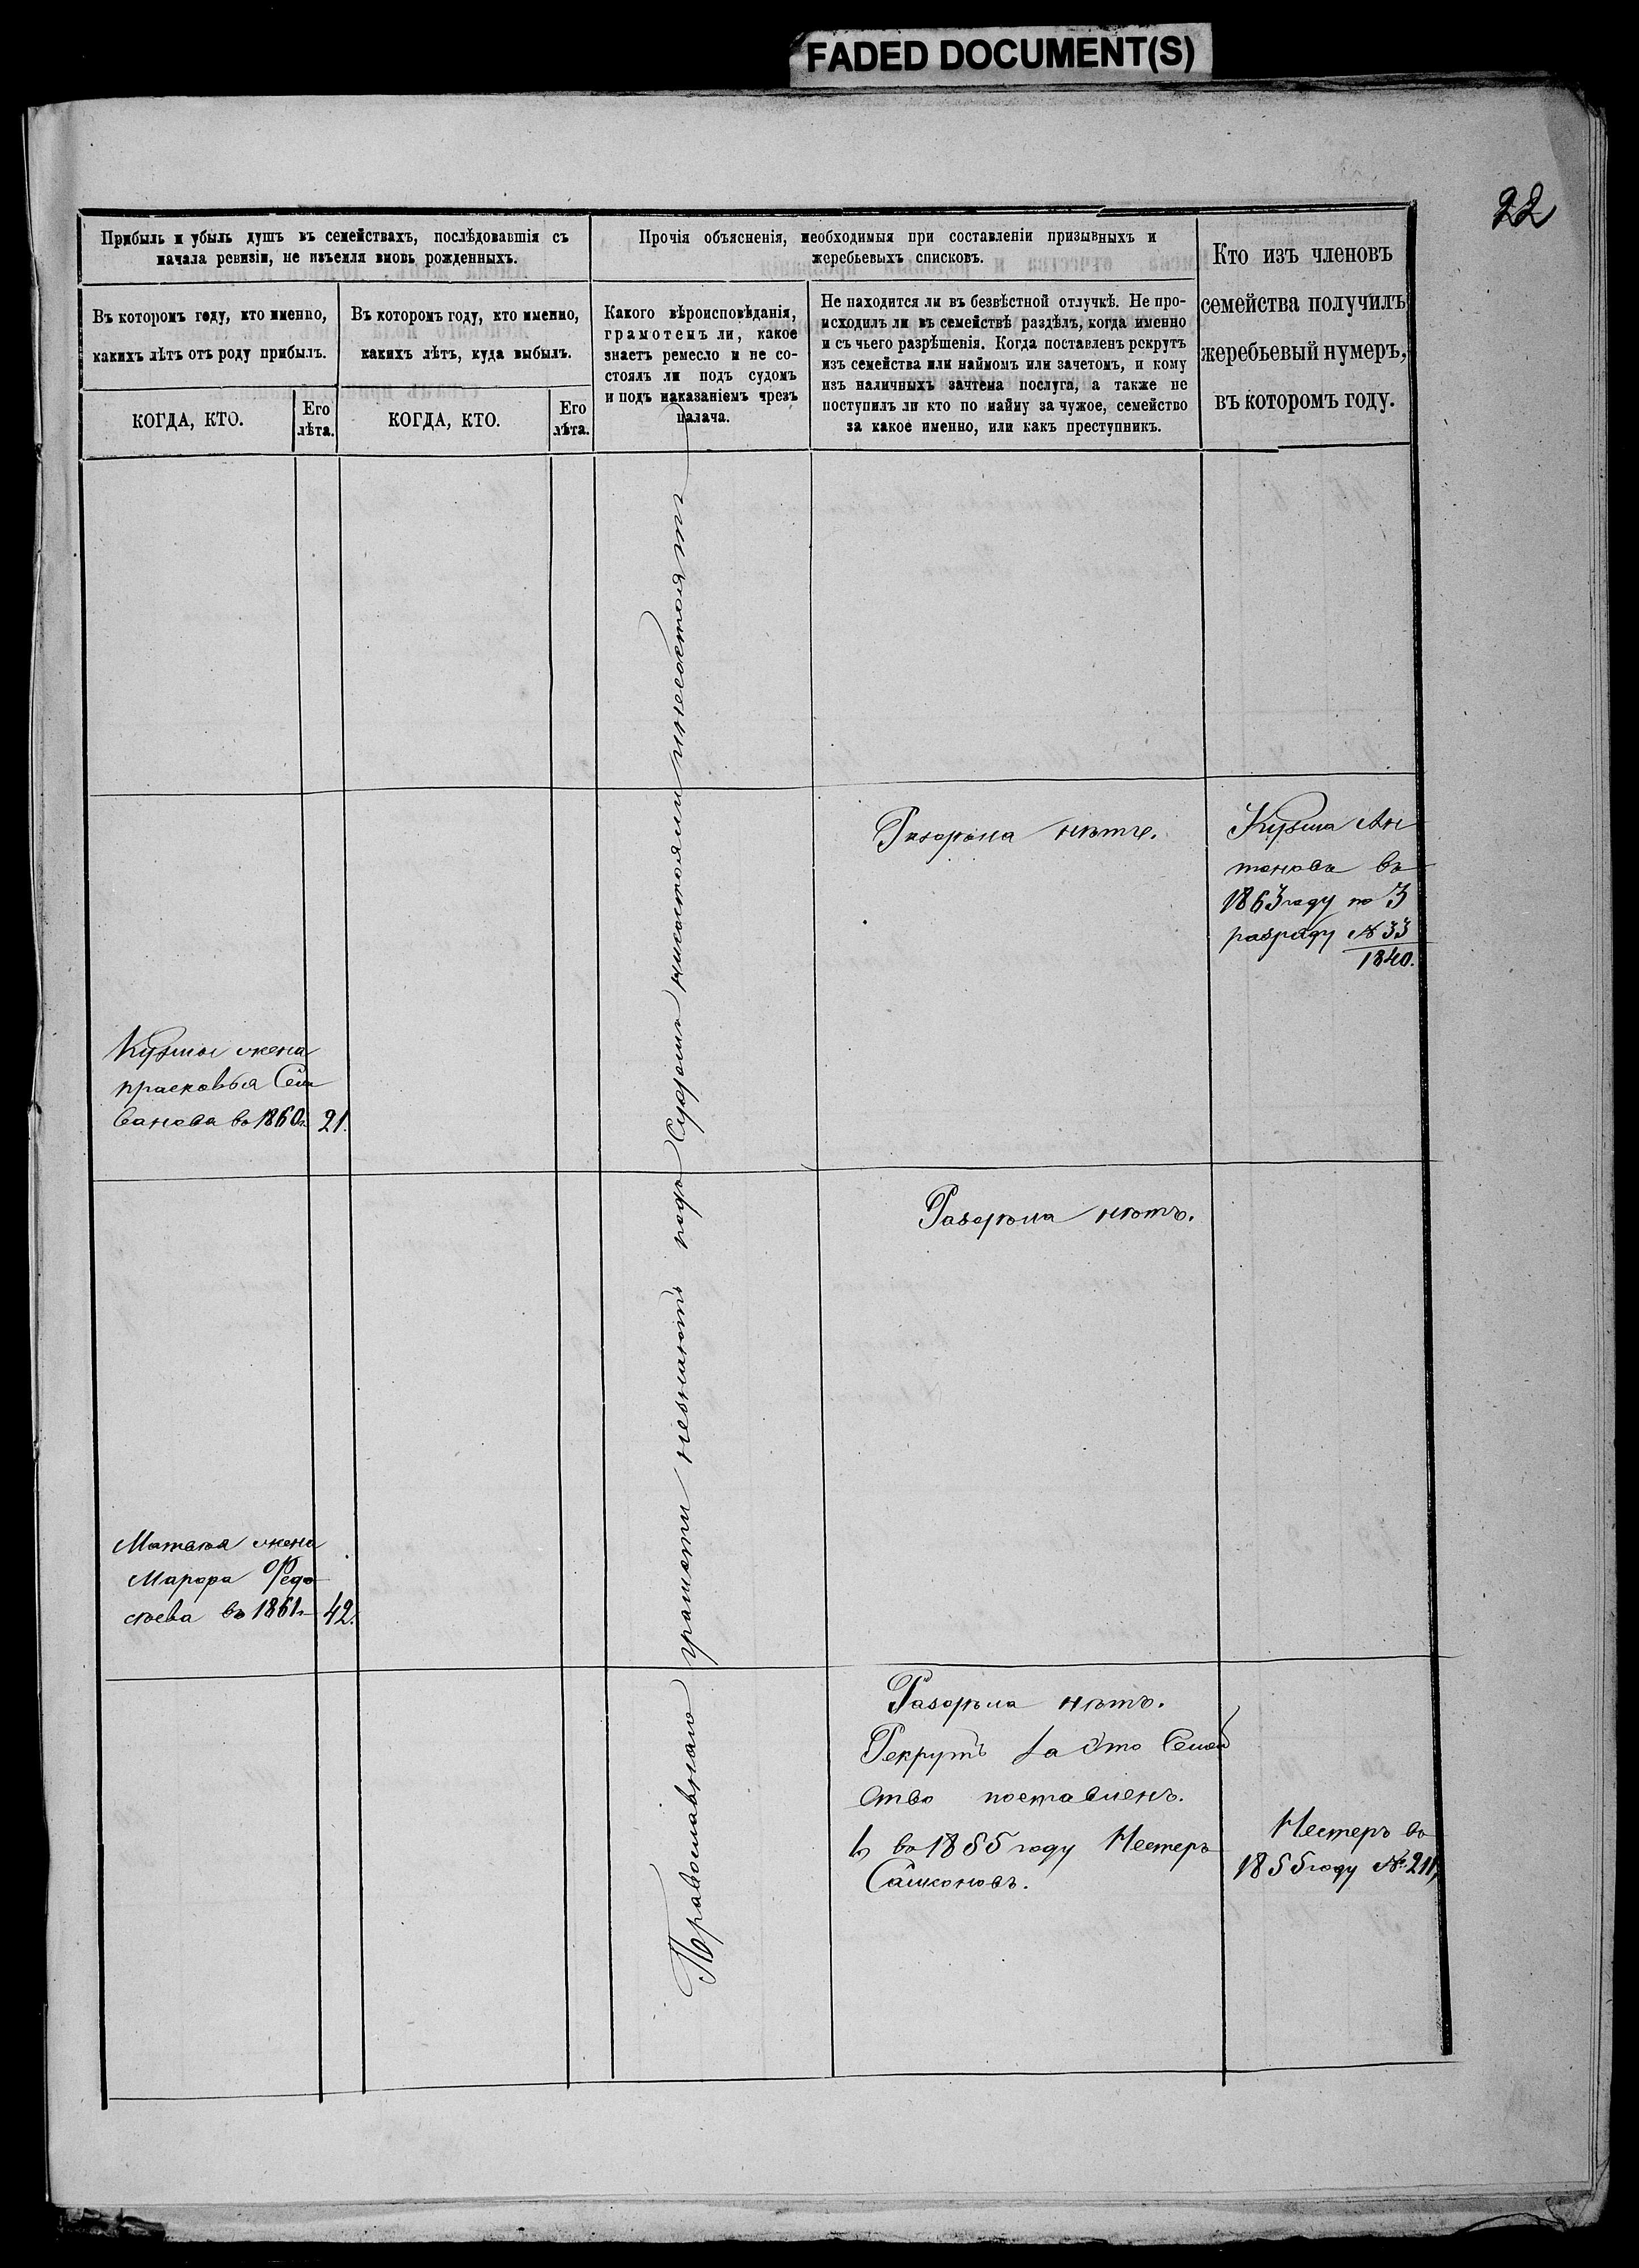 FADED DOCUMENT(S)
22
Прибыль и убыль душъ въ семействахъ, послѣдовавшія съ
начала ревизіи, не изъемля вновь рожденныхъ.
Въ которомъ году, кто именно,
какихъ лѣтъ отъ роду прибылъ.
КОГДА, КТО.
Его
лѣта.
Въ которомъ году, кто именно,
какихъ лѣтъ, куда выбылъ.
КОГДА, КТО.
Его
лѣта.
Прочія объясненія, необходимыя при составленіи призывныхъ и
жеребьевыхъ списковъ.
Какого вѣроисповѣданія,
грамотенъ ли, какое
знаетъ ремесло и не со-
стоялъ ли подъ судомъ
и подъ наказаніемъ чрезъ
палача.
Не находится ли въ безвѣстной отлучкѣ. Не про-
исходилъ ли въ семействѣ раздѣлъ, когда именно
и съ чьего разрѣшенія. Когда поставленъ рекрутъ
изъ семейства или наймомъ или зачетомъ, и кому
изъ наличныхъ зачтена послуга, а также не
поступилъ ли кто по найму за чужое, семейство
за какое именно, или какъ преступникъ.
Кто изъ членовъ
семейства получилъ
жеребьевый нумеръ,
въ которомъ году.
Православнаго грамоты незнаютъ подъ Судомъ нисостояли инесостоятъ
Раздѣла нѣтъ.
Кузьма Ан
тоновъ въ
1863 году по 3
разряду № 33
1840.
Кузьмы жена
прасковья Сели
ванова въ 1860г. 21.
Раздѣла нѣтъ.
Матвѣя жена
Марфа Федо
сѣева въ 1861г. 42.
Раздѣла нѣтъ.
Рекрутъ за Это Семей
Ство поставленъ.
въ 1855 году Нестеръ
Нестеръ въ
1855 году №. 211,